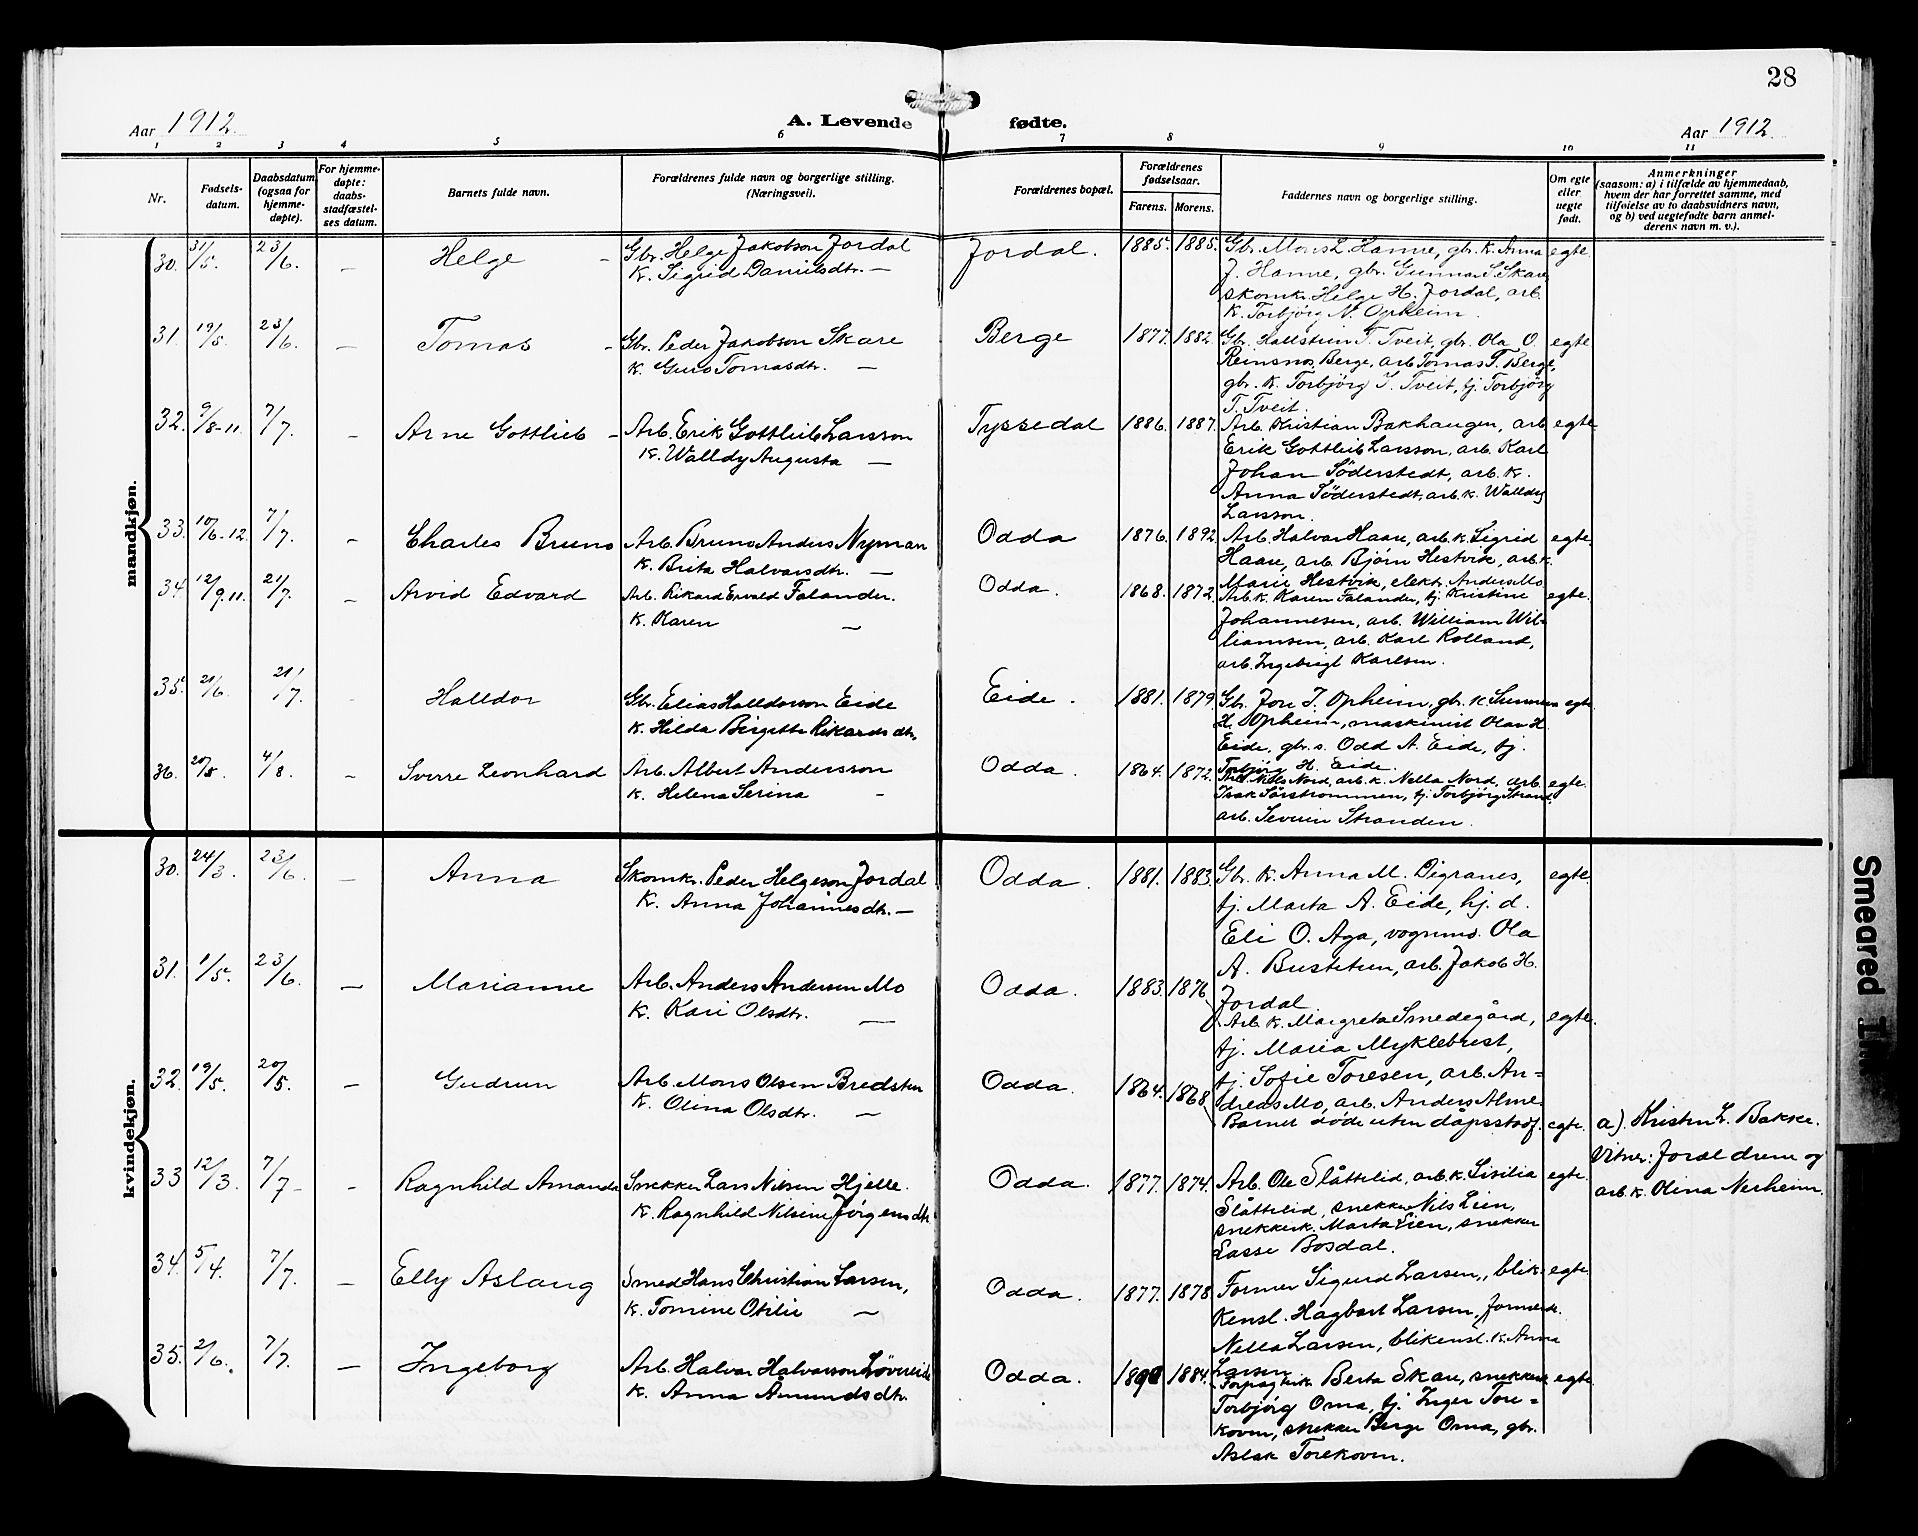 28
Aar 1912.
A. Levende fødte.
Aar 1912.
1 2 3 4 5 6 7 8 9 10 11
Nr.
Fødsels-
datum.
Daabsdatum
(ogsaa for
hjemme-
døpte).
For hjemme-
døpte:
daabs-
stadfæstel-
ses datum.
Barnets fulde navn.
Forældrenes fulde navn og borgerlige stilling.
(Næringsvei).
Forældrenes bopæl.
Forældrenes
fødselsaar.
Farens. Morens.
Faddernes navn og borgerlige stilling.
Om egte
eller
uegte
født.
Anmerkninger
(saasom: a) i tilfælde av hjemmedaab,
hvem der har forrettet samme, med
tilføielse av to daabsvidners navn,
og b) ved uegtefødte barn anmel-
derens navn m. v.).
mandkjøn.
30. 31/5. 23/6. — Helge – Gbr. Helge Jakobson Jordal Jordal. 1885. 1885. Gbr. Mons L. Hamre, gbr. k. Anna egte
k. Sigrid Danielsdtr. — J. Hamre, gbr. Gunnar S. Skare,
skomk. Helge H. Jordal, arb.
k. Torbjörg N. Opheim.
31. 19/5. 23/6. — Tomas – Gbr. Peder Jakobson Skare Berge 1877. 1882. Gbr. Hallstein T. Tveit, gbr. Ola O. egte
k. Guro Tomasdtr. — Reinsnos, Berge, arb. Tomas T. Berge,
gbr. k. Torbjörg T. Tveit, tj. Torbjörg
T. Tveit.
32. 9/8-11. 7/7. – Arne Gottlieb – Arb. Erik Gottlieb Larsson Tyssedal 1886. 1887. Arb. Kristian Bakhaugen, arb. egte
k. Walldy Augusta — Erik Gottlieb Larsson, arb. Karl
Johan Söderstedt, arb. k.
Anna Söderstedt, arb. k. Walldy
Larsson.
33. 10/6-12. 7/7. – Charles Bruno Arb. Bruno Anders Nyman Odda 1876. 1892 Arb. Halvar Haare, arb. k. Sigrid egte.
k. Brita Halvarsdtr. — Haare, arb. Bjørn Hestvik, arb. k.
Marie Hestvik, elekt. Anders Mo
34 12/9.11. 21/7. – Arvid Edvard Arb. Rikard Ervald Falander. Odda. 1868. 1872. Arb. k. Karen Falander, tj. Kristine egte.
k. Karen — Johannesen, arb. William Wil-
liamsen, arb. Karl Rolland,
arb. Ingebrigt Karlsen.
35. 21/6. 21/7. Halldor Gbr. Elias Halldorson Eide Eide. 1881. 1879. Gbr. Jon J. Opheim, gbr. k. egte
k. Hilda Birgitte Rikardsdtr. H. Opheim, maskinist Olav H.
Eide, gbr. s. Odd A. Eide, tj.
Torbjörg H. Eide.
36. 20/5. 4/8. – Sverre Leonhard Arb. Albert Andersson Odda. 1864. 1872. Arb. Nils Nord, arb. k. Nella Nord, arb. egte.
k. Helena Serina – Isak Sörstrommen, tj. Torbjörg Strand,
arb. Severin Stranden.
kvindekjøn.
30. 24/3. 23/6. — Anna Skomk. Peder Helgeson Jordal Odda. 1881. 1883. Gbr. k. Anna M. Digranes, egte.
k. Anna Johannesdtr. — tj. Marta A. Eide, hj. d.
Eli O. Aga, vognms. Ola
A. Bustetun, arb. Jakob H.
Jordal.
31. 1/5. 23/6. — Marianne Arb. Anders Andersen Mo Odda. 1883. 1876 Arb. k. Margreta Smedegård, egte.
k. Kari Olsdtr. — tj. Maria Myklebust,
tj. Sofie Toresen, arb. An=
dreas Mo, arb. Anders Alme.
32. 19/5. 20/5. – Gudrun Arb. Mons Olsen Bredsten Odda. 1864. 1868 Barnet døde uten dåpsstadf. egte. a). Kristen L. Bakke.
k. Olina Olsdtr. — Vitner: Jordmoren og
arb. k. Olina Nerheim.
33 12/3. 7/7– – Ragnhild Amanda Snekker Lars Nilsen Hjelle. Odda. 1877. 1874. Arb. Ole Slåttelid, arb. k. Sisilia egte.
k. Ragnhild Nilsine Jörgensdtr. Slåttelid, snekker Nils Lien,
snekkerk. Marta Lien, snekker
Lasse Bosdal.
34. 5/4. 7/7. – Elly Aslaug Smed Hans Christian Larsen, Odda. 1877. 1878. Former Sigurd Larsen, blik- egte.
k. Tomine Otilie — kensl. Hagbart Larsen, formerk.
Nella Larsen, blikensl. k. Anna
Larsen
35. 2/6. 7/7. — Ingeborg Arb. Halvar Halvarson Løvreide Odda. 1890 1884. Berta Skare, snekkerk. egte.
k. Anna Amundsdtr. Torbjörg Oma, tj. Inger Tore=
koven, snekker Berge Oma, gbr.
Aslak Torekoven.
Smeared